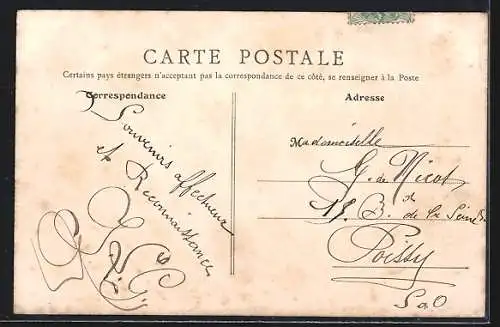 CARTE POSTALE
Certains pays étrangers n'acceptant pas la correspondance de ce côté, se renseigner à la Poste
Correspondance
Souvenirs affectueux
et Reconnaissance
Adresse
Mademoiselle
G. de Nicot
18, B. de la Seine
Poissy
S & O